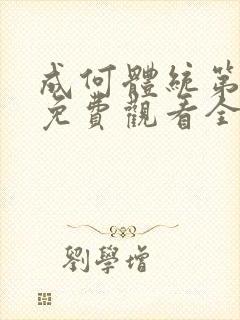 成何體統第
免費觀看全
劉學增